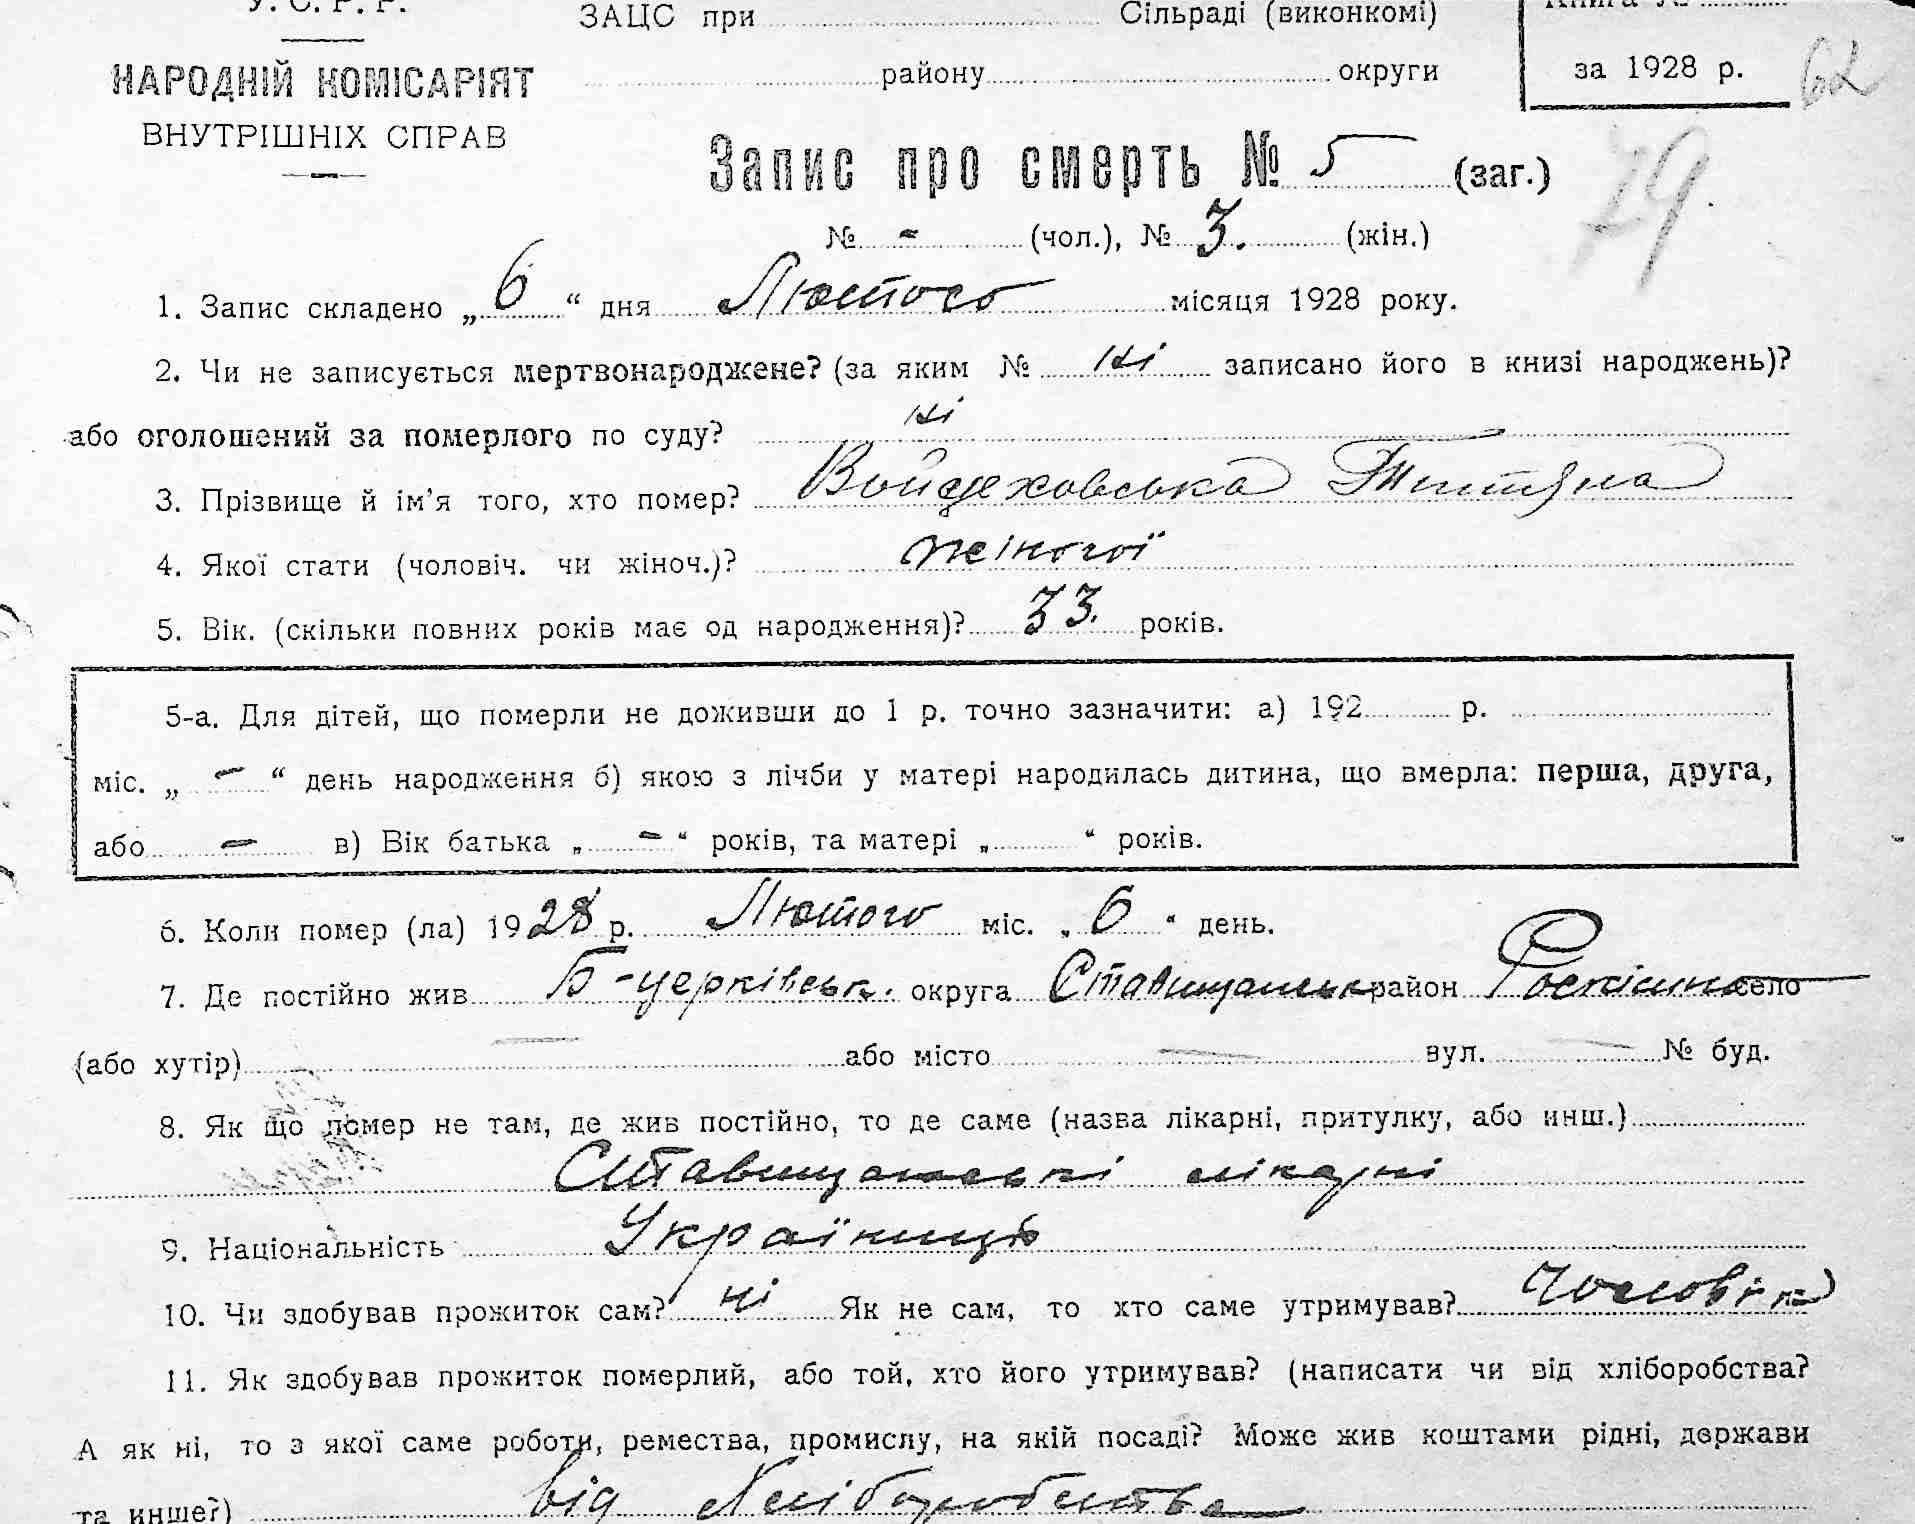 У. С. Р. Р.
ЗАЦС при Сільраді (виконкомі)
НАРОДНІЙ КОМІСАРІЯТ
ВНУТРІШНІХ СПРАВ
району округи
Книга №
за 1928 р.
62
79
Запис про смерть № 5 (заг.)
№ - (чол.), № 3. (жін.)
1. Запис складено „6“ дня Лютого місяця 1928 року.
2. Чи не записується мертвонароджене? (за яким № ні записано його в книзі народжень)?
або оголошений за померлого по суду? ні
3. Прізвище й ім'я того, хто помер? Войцеховська Титяна
4. Якої стати (чоловіч. чи жіноч.)? жіночої
5. Вік. (скільки повних років має од народження)? 33. років.
5-а. Для дітей, що померли не доживши до 1 р. точно зазначити: а) 192 р.
міс. „ - “ день народження б) якою з лічби у матері народилась дитина, що вмерла: перша, друга,
або - в) Вік батька „ - “ років, та матері „ “ років.
6. Коли помер (ла) 1928 р. Лютого міс. „6“ день.
7. Де постійно жив Б-церківськ. округа Ставищанськ район село
(або хутір) — або місто — вул. — № буд.
8. Як що помер не там, де жив постійно, то де саме (назва лікарні, притулку, або инш.)
Ставищанські лікарні
9. Національність Українць
10. Чи здобував прожиток сам? ні Як не сам, то хто саме утримував? Чоловік
11. Як здобував прожиток померлий, або той, хто його утримував? (написати чи від хліборобства?
А як ні, то з якої саме роботи, ремества, промислу, на якій посаді? Може жив коштами рідні, держави
та инше?) від Хліборобства